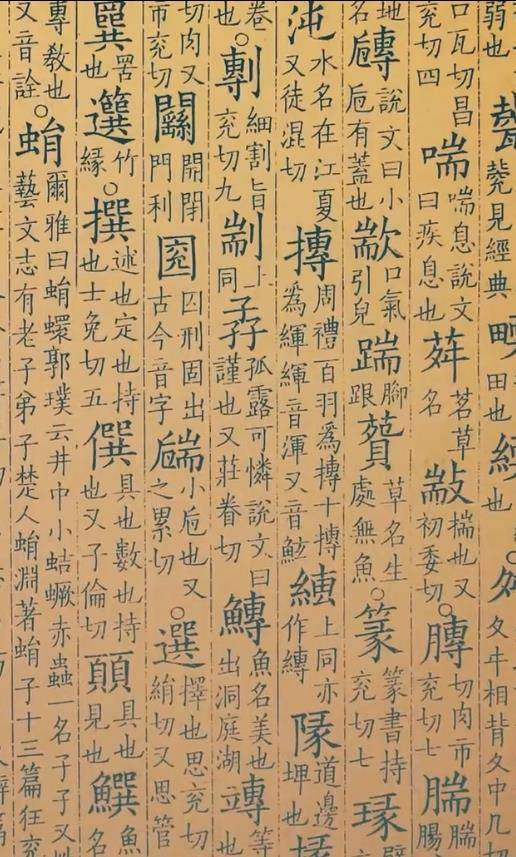 弱也 見經典 田也 也 ○舛 夊㐄相背夊中几切
口瓦切昌兗切四 喘 喘息說文曰疾息也 荈 茗草名 㪜 揣也又初委切 ○膞 切肉市兗切七 腨 腨腸
地名 說文曰小巵有蓋也 歂 口氣引皃 踹 腳跟 草名生處無魚 ○篆 篆書持兗切七 瑑 璧
沌 水名在江夏又徒混切 摶 周禮百羽爲摶十摶爲緷緷音渾又音 上同亦作縳 道邊埤也
卷也 ○剸 細割旨兗切九 剬 上同 孨 孤露可憐說文曰謹也又莊眷切 鱄 魚名美也出洞庭湖 竱 等也
切肉又市兗切 開閉門利 囚刑固出古今音字 小巵也又之累切 ○選 擇也思兗切絹切又思管
罟也 竹緣 ○撰 述也定也持也士免切五 僎 具也數也持也又子倫切 顨 具也見也 魚名
專教也又音詮 ○蜎 爾雅曰蜎蠉郭璞云井中小蛣蟩赤蟲一名孑孓又 藝文志有老子弟子楚人蜎淵著蜎子十三篇狂兗